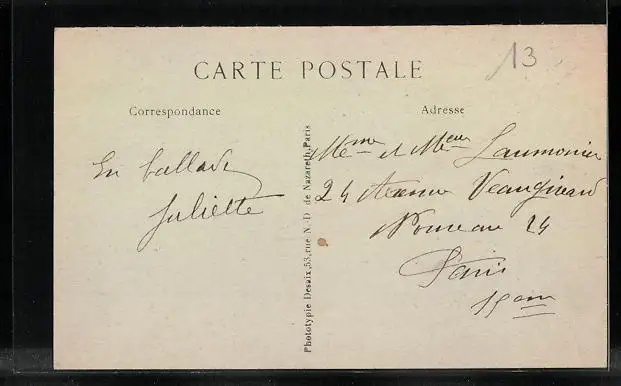 13
CARTE POSTALE
Correspondance
Adresse
En ballade
Juliette
Mme et Meur Laumonier
24 Avenue Veaugirard
Nouveau 24
Paris
15em
Phototypie Desaix, 53, rue N.-D. de Nazareth, Paris